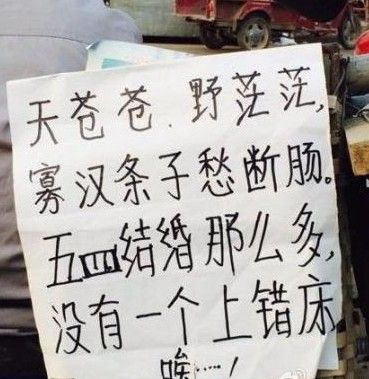 天苍苍.野茫茫,
寡汉条子愁断肠。
五四结婚那么多,
没有一个上错床
唉……!